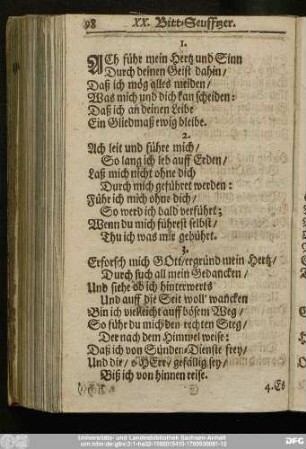 98 XX. Bitt-Seuffzer.
1.
ACh führ mein Hertz und Sinn
Durch deinen Geist dahin/
Daß ich mög alles meiden/
Was mich und dich kan scheiden:
Daß ich an deinen Leibe
Ein Gliedmaß ewig bleibe.
2.
Ach leit und führe mich/
So lang ich leb auff Erden/
Laß mich nicht ohne dich
Durch mich geführet werden:
Führ ich mich ohne dich/
So werd ich bald verführt;
Wenn du mich führest selbst/
Thu ich was mir gebührt.
3.
Erforsch mich GOtt/ergründ mein Hertz/
Durchsuch all mein Gedancken/
Und siehe ob ich hinterwerts
Und auff die Seit woll' wancken
Bin ich vielleicht auff bösem Weg/
So führ du mich den rechten Steg/
Der nach dem Himmel weise:
Daß ich von Sünden-Dienste frey/
Und dir/ o HErr/ gefällig sey/
Biß ich von hinnen reise.
4. Es
Universitäts- und Landesbibliothek Sachsen-Anhalt